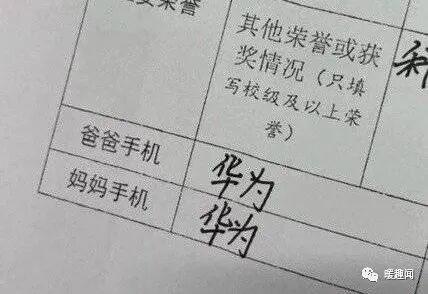 荣誉
其他荣誉或获
奖情况（只填
写校级及以上荣
誉）
爸爸手机
华为
妈妈手机
华为
暖趣闻